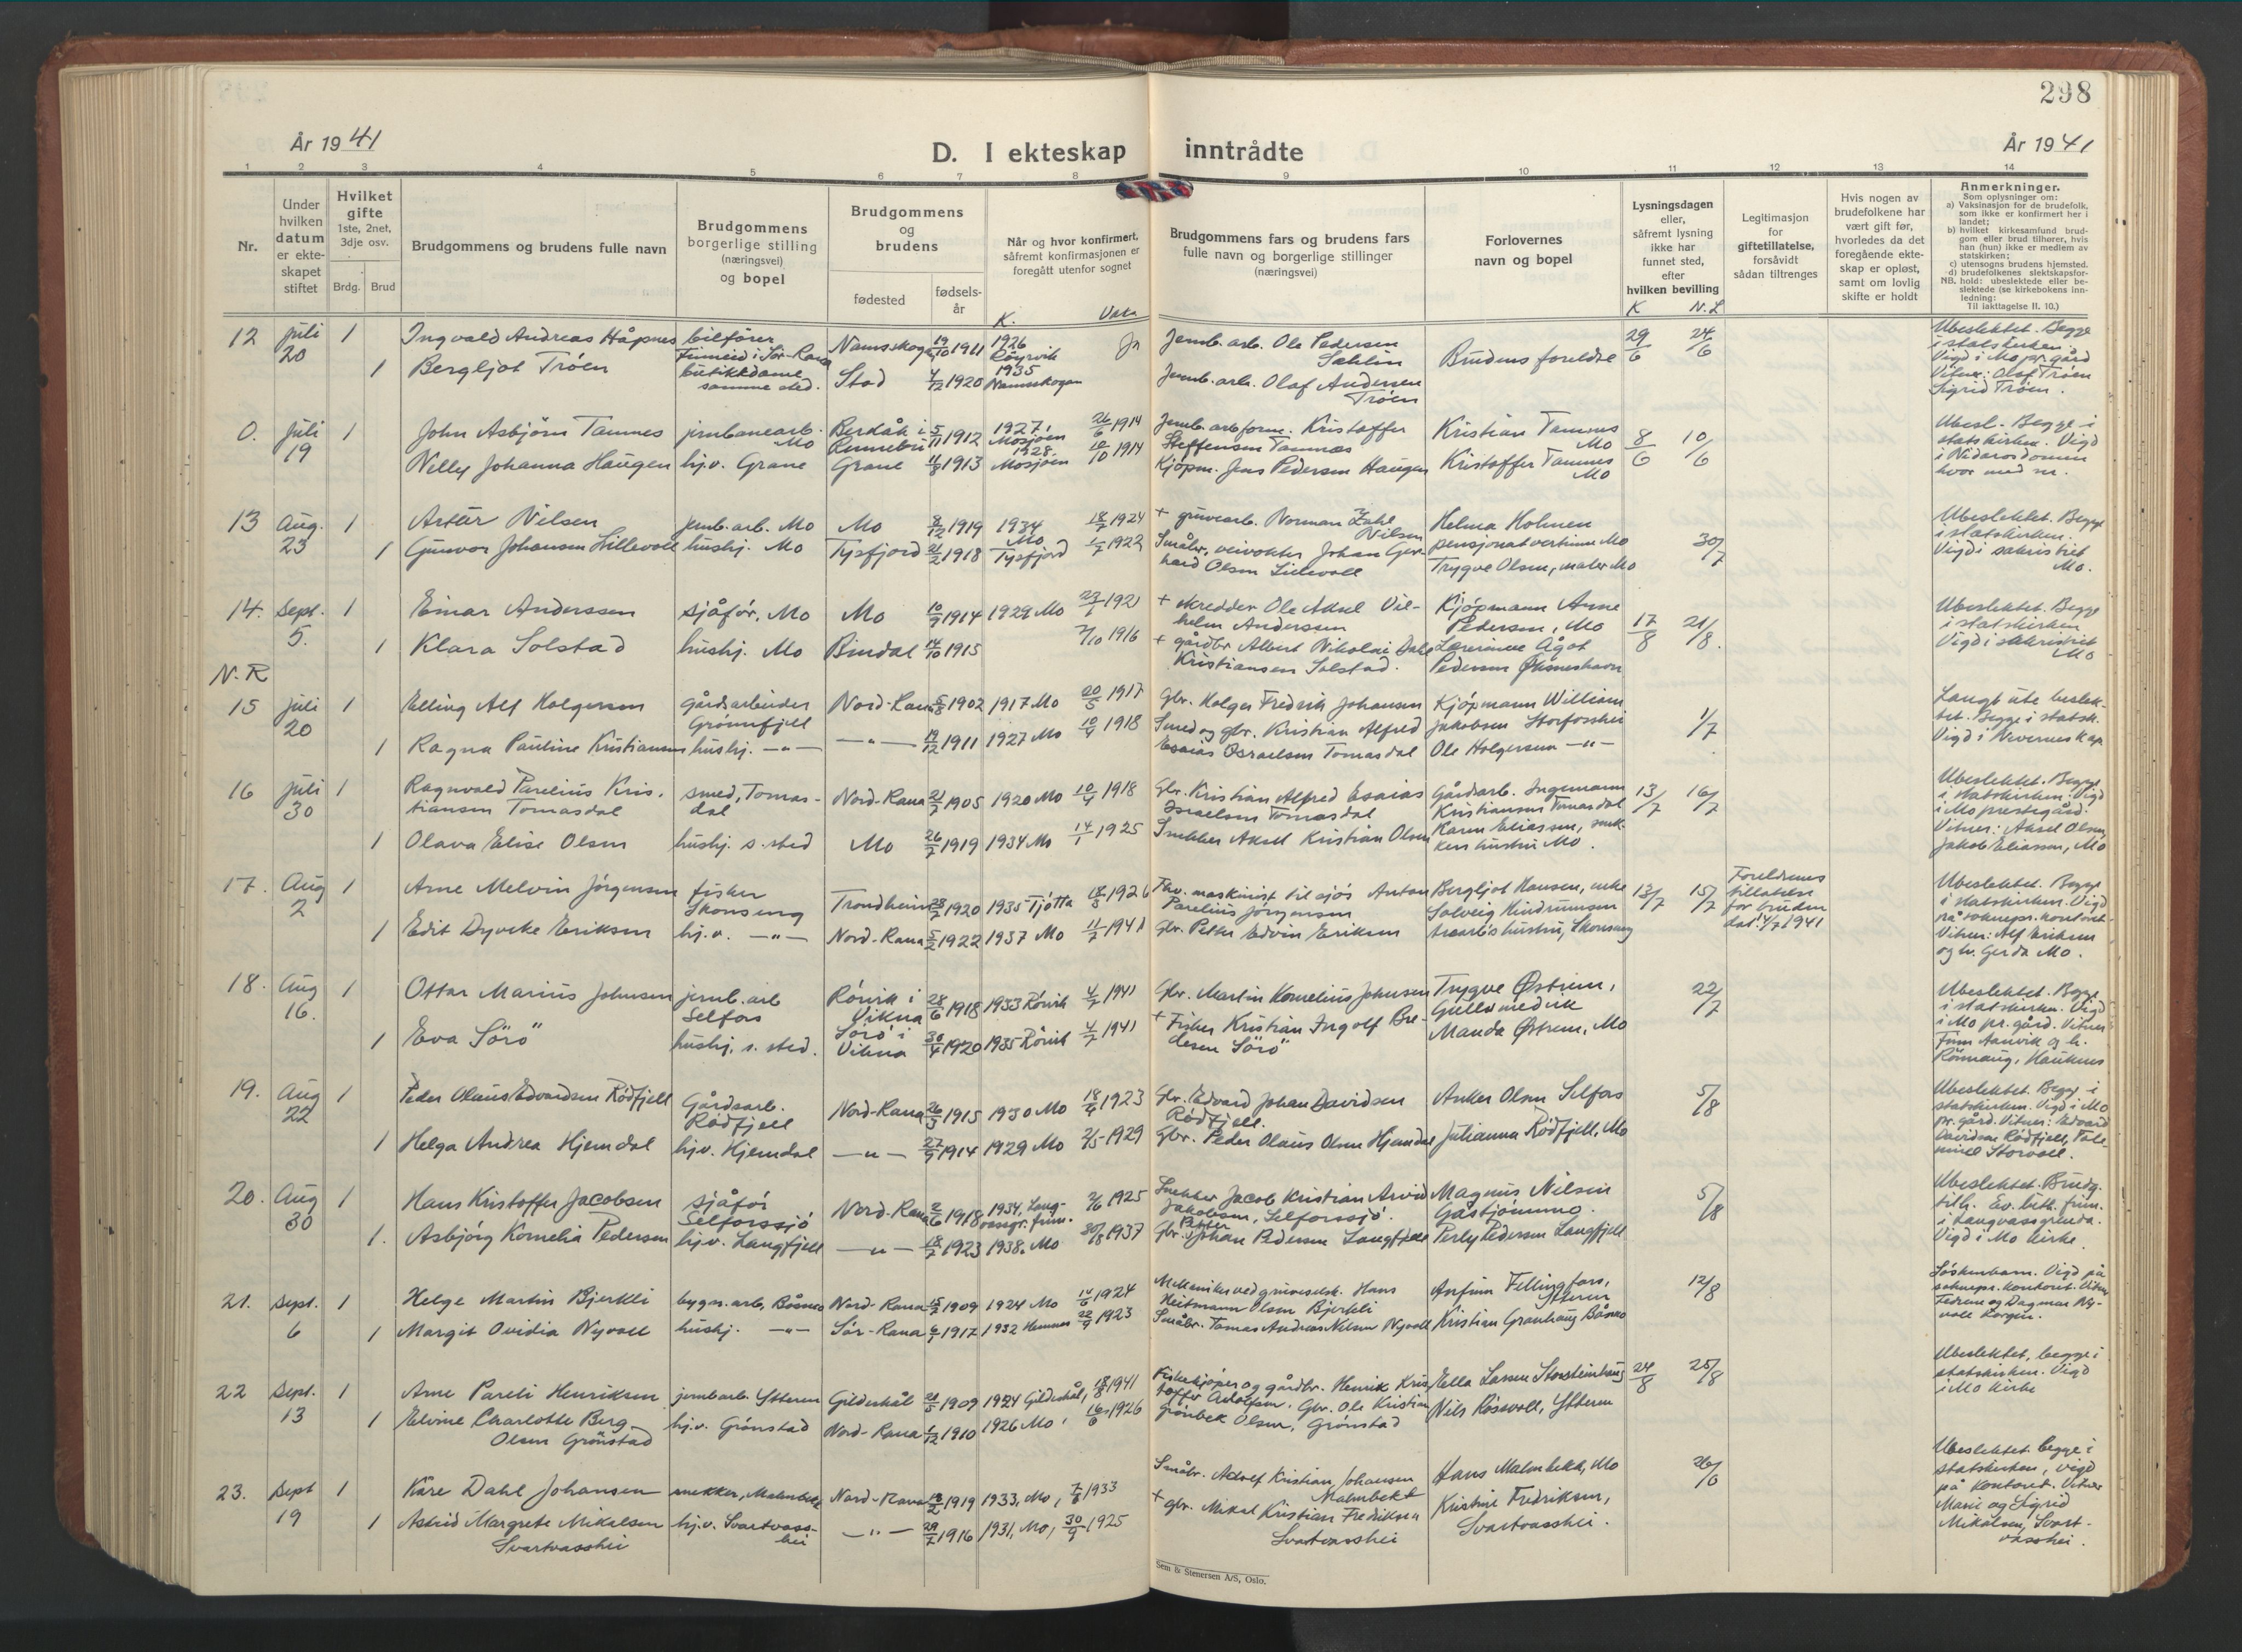 298
År 1941
D. I ekteskap inntrådte
År 1941
1 2 3 4 5 6 7 8 9 10 11 12 13 14
Nr.
Under hvilken datum er ekteskapet stiftet
Hvilket gifte 1ste, 2net, 3dje osv.
Brdg. Brud
Brudgommens og brudens fulle navn
Brudgommens borgerlige stilling (næringsvei) og bopel
Brudgommens og brudens
fødested
fødselsår
Når og hvor konfirmert, såfremt konfirmasjonen er foregått utenfor sognet
K. Vaks
Brudgommens fars og brudens fars fulle navn og borgerlige stillinger (næringsvei)
Forlovernes navn og bopel
Lysningsdagen eller, såfremt lysning ikke har funnet sted, efter hvilken bevilling
K N.L
Legitimasjon for giftetillatelse, forsåvidt sådan tiltrenges
Hvis nogen av brudefolkene har vært gift før, hvorledes da det foregående ekteskap er opløst, samt om lovlig skifte er holdt
Anmerkninger.
Som oplysninger om:
a) Vaksinasjon for de brudefolk, som ikke er konfirmert her i landet;
b) hvilket kirkesamfund brudgom eller brud tilhører, hvis han (hun) ikke er medlem av statskirken;
c) utensogns brudens hjemsted.
d) brudefolkenes slektskapsforhold: ubeslektede eller beslektede (se kirkebokens innledning:
NB.
Til iakttagelse II. 10.)
12 Juli 20 1 Ingvald Andreas Håpnes bilfører Finneid i Sør-Rana Namsskogan 19/10 1911 1926 Røyrvik Ja
Jernb. arb. Ole Pedersen Sæhlin Brudens foreldre 29/6 24/6
1 Bergljot Trøen butikkdame samme sted. Stod 4/12 1920 1935 Namsskogan
Jernb. arb. Olaf Andersen Trøen
Ubeslektet. Begge i statskirken. Vigd i Mo pr. gård Vitner: Olaf Trøen Sigrid Trøen.
0. Juli 19 1 John Asbjørn Tamnes jernbanearb. Mo Berkåk i Rennebu 5/11 1912 1927, Mosjøen 26/6 1914
Jernb. arb. form. Kristoffer Steffensen Tamnes Kristian Tamnes Mo 8/6 10/6
Nelly Johanna Haugen hj.v. Grane Grane 11/8 1913 1928 Mosjøen 10/10 1914
Kjøpm. Jens Pedersen Haugen Kristoffer Tamnes Mo
Ubesl. Begge i statskirken. Vigd i Nidarosdomen hvor med nr.
13 Aug. 23 1 Artur Nilsen jernb. arb. Mo Mo 8/12 1919 1934 Mo 18/7 1924
+ gruvearb. Norman Zahl Nilsen Helma Holmen pensjonatvertinne Mo 30/7
1 Gunvor Johansen Lillevoll hushj. Mo Tysfjord 21/2 1918 Tysfjord 1/7 1922
Småbr., veivokter Johan Gerhard Olsen Lillevoll Trygve Olsen, maler Mo
Ubeslektet. Begge i statskirken. Vigd i sakristiet Mo.
14. Sept. 5. 1 Einar Anderssen sjåfør, Mo Mo 10/9 1914 1929 Mo 23/1 1921
+ skredder Ole Aksel Vilhelm Anderssen Kjøpmann Arne Pedersen, Mo 17/8 21/8.
1 Klara Solstad hushj. Mo Bindal 14/10 1915 7/10 1916
+ gårdbr Albert Nikolai Dahl Kristiansen Solstad. Lærerinne Ågot Pedersen Øksneshavn
Ubeslektet. Begge i statskirken Vigd i sakristiet Mo
N.R
15 Juli 20 1 Elling Alf Holgersen gårdsarbeider Grønnfjell Nord-Rana 5/8 1902 1917 Mo 20/5 1917
Gbr. Holger Fredrik Johansen Kjøpmann William Jakobsen Storforshei 1/7
1 Ragna Pauline Kristiansen hushj. —"— —"— 19/12 1911 1927 Mo 10/4 1918
Smed og gbr. Kristian Alfred Esaias Israelsen Tomasdal Ole Holgersen —"—
Langt ute beslektet. Begge i statsk. Vigd i Nevernes kap.
16 Juli 30 1 Ragnvald Parelius Kristiansen Tomasdal smed, Tomasdal Nord-Rana 21/7 1905 1920 Mo 10/4 1918
Gbr. Kristian Alfred Esaias Israelsen Tomasdal Gårdsarb. Ingemann Kristiansen Tomasdal 13/7 16/7
1 Olava Elise Olsen hushj. s. sted Mo 26/7 1919 1934 Mo 14/1 1925
Snekker Aksel Kristian Olsen Karen Eliassen, snekkers hustru Mo.
Ubeslektet. Begge i statskirken. Vigd i Mo prestegård. Vitner: Aksel Olsen, Jakob Eliassen, Mo
17. Aug 2 1 Arne Melvin Jørgensen fisker Skonseng Trondheim 28/7 1920 1935 Tjøtta 18/8 1926
Fhv. maskinist til sjøs Anton Parelius Jørgensen Bergljot Hansen, enke 13/7 15/7 Foreldrenes tillatelse for bruden dat. 4/7 1941
1 Edit Dyveke Eriksen hj.v. —"— Nord-Rana 5/2 1922 1937 Mo 11/7 1941
Gbr. Petter Edvin Eriksen Solveig Hindrumsen hustru, Skonseng
Ubeslektet. Begge i statskirken. Vigd på sokneprs. kontoret. Vitner: Alf Eriksen og h. Gerda Mo.
18. Aug 16. 1 Ottar Marius Johnsen jernb. arb Selfors Rørvik i Vikna 28/6 1918 1933 Rørvik 4/7 1941
Gbr. Martin Kornelius Johnsen Trygve Østrem, Gullsmedvik 22/7
1 Eva Sörö hushj. s. sted. Sörö i Vikna 30/4 1920 1935 Rørvik 4/7 1941
+ Fisker Kristian Ingolf Bredesen Sörö Manda Østrem, Mo
Ubeslektet. Begge i statskirken. Vigd i Mo pr. gård. Vitner Finn Aanvik og h. Rönnaug, Hauknes
19. Aug 22 1 Peder Olaus Edvardsen Rødfjell Gårdsarb. Rødfjell Nord-Rana 26/3 1915 1930 Mo 18/9 1923
Gbr. Edvard Johan Davidsen Rødfjell. Anker Olsen Selfors 5/8
1 Helga Andrea Hjemdal hj.v. Hjemdal —"— 27/9 1914 1929 Mo 2/5 1929
Gbr. Peder Olaus Olsen Hjemdal Julianna Rødfjell, Mo
Ubeslektet. Begge i statskirken. Vigd i Mo pr. gård. Vitner: Edvard Davidsen Rødfjell, Storvoll.
20. Aug 30 1 Hans Kristoffer Jacobsen sjåfør Selforssjø Nord-Rana 2/6 1918 1934, Langvassgr. frim. 2/6 1925
Snekker Jacob Kristian Arvid Jakobsen, Selforssjø. Magnus Nilsen Gåstjønnmo. 5/8
1. Asbjørg Kornelia Pedersen hj.v. Langfjell —"— 18/7 1923 1938. Mo 30/8 1937
Gbr. Petter Johan Pedersen Langfjell Perly Pedersen Langfjell
Ubeslektet. Brudg. tilh. Ev. luth. frim. i Langvassgrenda. Vigd i Mo kirke
21. Sept. 6 1 Helge Martin Bjerkli bygn. arb. Båsmo Nord-Rana 15/2 1909 1924 Mo 14/6 1924
Mekaniker ved gruveselsk. Hans Heitmann Olsen Bjerkli Anfinn Fellingfors, Ytteren 12/8
1 Margit Ovidia Nyvoll hushj. —"— Sør-Rana 6/1 1917 1932 Hemnes 22/9 1923
Småbr. Tomas Andreas Nilsen Nyvoll Kristian Granhaug Båsmo
Søskenbarn. Vigd på sokneprs. kontoret. Vitner Fedrum og Dagmar Nyvoll Korgen.
22 Sept. 13 1 Arne Pareli Henriksen jernb arb. Ytteren Gildeskål 21/5 1909 1924 Gildeskål, 18/8 1941
Fiskekjøper og gårdbr. Henrik Kristoffer Adolfsen. Ella Larsen Storsteinhaug 24/8 25/8
1 Elvine Charlotte Berg-Olsen Grønstad hj.v. Grønstad Nord-Rana 1/12 1910 1926 Mo, 16/6 1926
Gbr. Ole Kristian Grønbek Olsen, Grønstad Nils Røsvoll, Ytteren
Ubeslektet, begge i statskirken. Vigd i Mo kirke
23. Sept 19 1 Kåre Dahl Johansen snekker, Malmbekk Nord-Rana 18/2 1919 1933, Mo, 7/8 1933
Småbr. Adolf Kristian Johansen Malmbekk Hans Malmbekk, Mo 26/8
1 Astrid Margrete Mikalsen Svartvasshei hj.v. Svartvasshei —"— 29/7 1916 1931, Mo, 30/9 1925
+ gbr. Mikal Kristian Fredriksen Svartvasshei Kristine Fredriksen, Svartvasshei.
Ubeslektet. begge i statskirken, vigd på kontoret. Vitner Marie og Sigrid Mikalsen, Svartvasshei.
Sem & Stenersen A/S, Oslo.